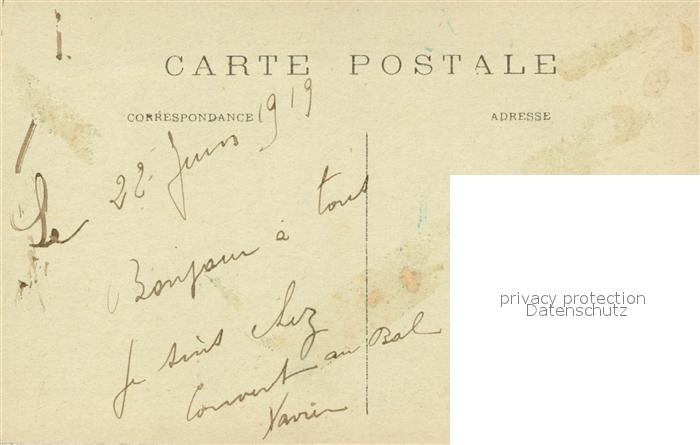 CARTE POSTALE
CORRESPONDANCE
ADRESSE
Le 22 Juin 1919
Bonjour à tous
Je suis chez
Couvert au Bal
Xavier
privacy protection
Datenschutz